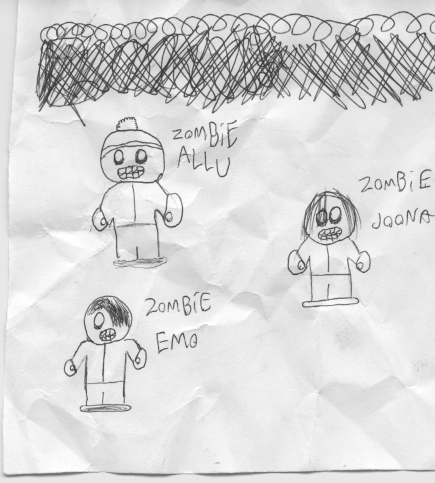 ZOMBiE
ALLU
ZOMBiE
JOONA
ZOMBiE
EMO